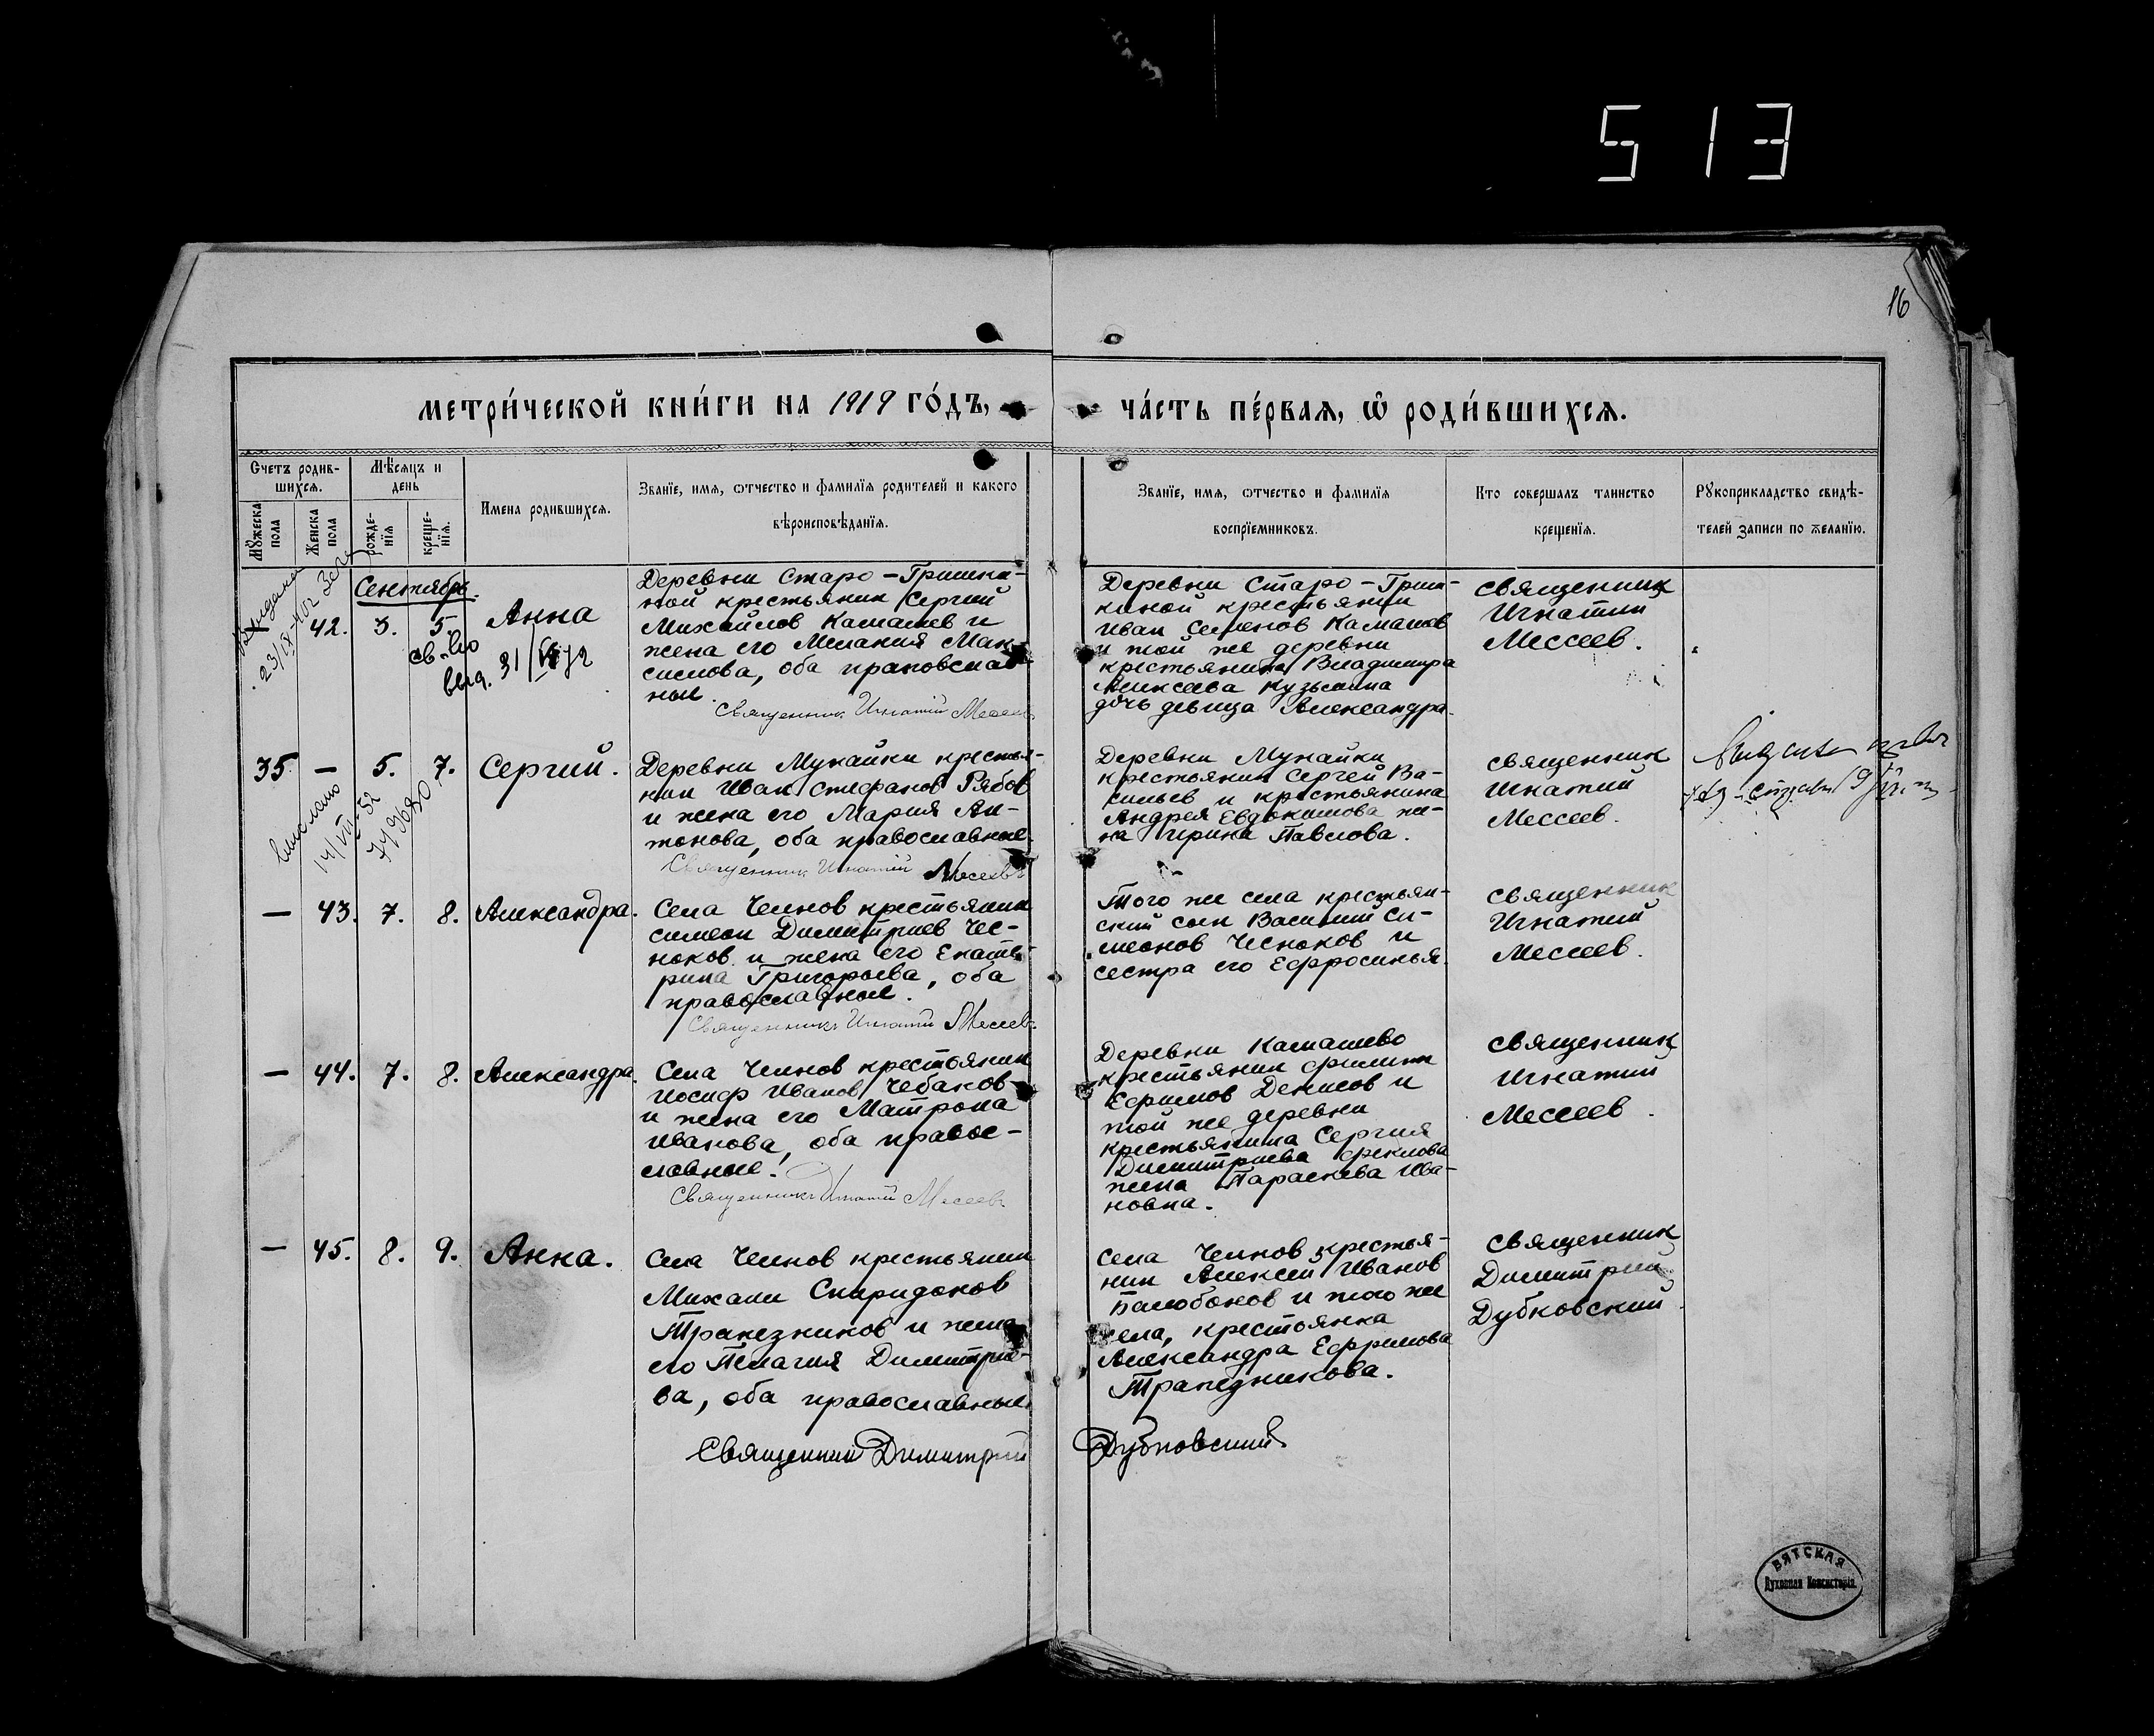 513
16
МЕТРИ́ЧЕСКОЙ КНИ́ГИ НА 1919 ГО́ДЪ,
ЧА́СТЬ ПЕ́РВАЯ, Ѡ҆ РОДИ́ВШИХСЯ.
Счетъ родив-
шихся.
Мѣсяцъ и
день
Мꙋжеска
пола
Женска
пола
рожде-
нїя
креще-
нїя.
Имена родившихся.
Званїе, имя, ѿтчество и фамилїя родителей и какого
вѣроисповѣданїя.
Званїе, имя, ѿтчество и фамилїя
воспрїемниковъ.
Кто совершалъ таинство
крещенїя.
Рꙋкоприкладство свидѣ-
телей записи по желанїю.
Сентябрь.
42. 3. 5. Анна
св-во
выд. 31/
Деревни Старо-Гришки-
ной крестьянин Сергий
Михайлов Камашев и
жена его Мелания Мак-
симова, оба православ-
ные.
Священник Игнатий Месеев
Деревни Старо-Гриш-
киной крестьянин
Иван Семенов Камашев
и той же деревни
крестьянина Владимира
Алексеева Кузьмина
дочь девица Александра.
священник
Игнатий
Мессеев.
35. — 5. 7. Сергий.
14/VII-52
Деревни Мунайки крестья-
нин Иван Стефанов Рябов
и жена его Мария Ан-
тонова, оба православные.
Священник Игнатий Месеевъ
Деревни Мунайки
крестьянин Сергей Ва-
сильев и крестьянина
Андрея Евдокимова же-
на Ирина Павлова.
священник
Игнатий
Мессеев.
— 43. 7. 8. Александра.
Села Челнов крестьянин
Симеон Димитриев Чес-
ноков и жена его Екате-
рина Григорьева, оба
православные.
Священникъ Игнатий Месеевъ
Того же села крестьян-
ский сын Василий Си-
меонов Чесноков и
сестра его Ефросинья.
священник
Игнатий
Мессеев.
— 44. 7. 8. Александра.
Села Челнов крестьянин
Иосиф Иванов Чебаков
и жена его Матрона
Иванова, оба правос-
лавные.
Священникъ Игнатий Месеевъ
Деревни Камашево
крестьянин Филипп
Ефимов Денисов и
той же деревни
крестьянина Сергия
Димитриева Феклова
жена Параскева Ива-
новна.
священник
Игнатий
Мессеев.
— 45. 8. 9. Анна.
Села Челнов крестьянин
Михаил Спиридонов
Трапезников и жена
его Пелагия Димитрие-
ва, оба православные.
Священник Димитрий Дубковский
Села Челнов крестья-
нин Алексей Иванов
Балобонов и того же
села, крестьянка
Александра Ефимова
Трапезникова.
священник
Димитрий
Дубковский
ВЯТСКАЯ
Духовная Консисторія.